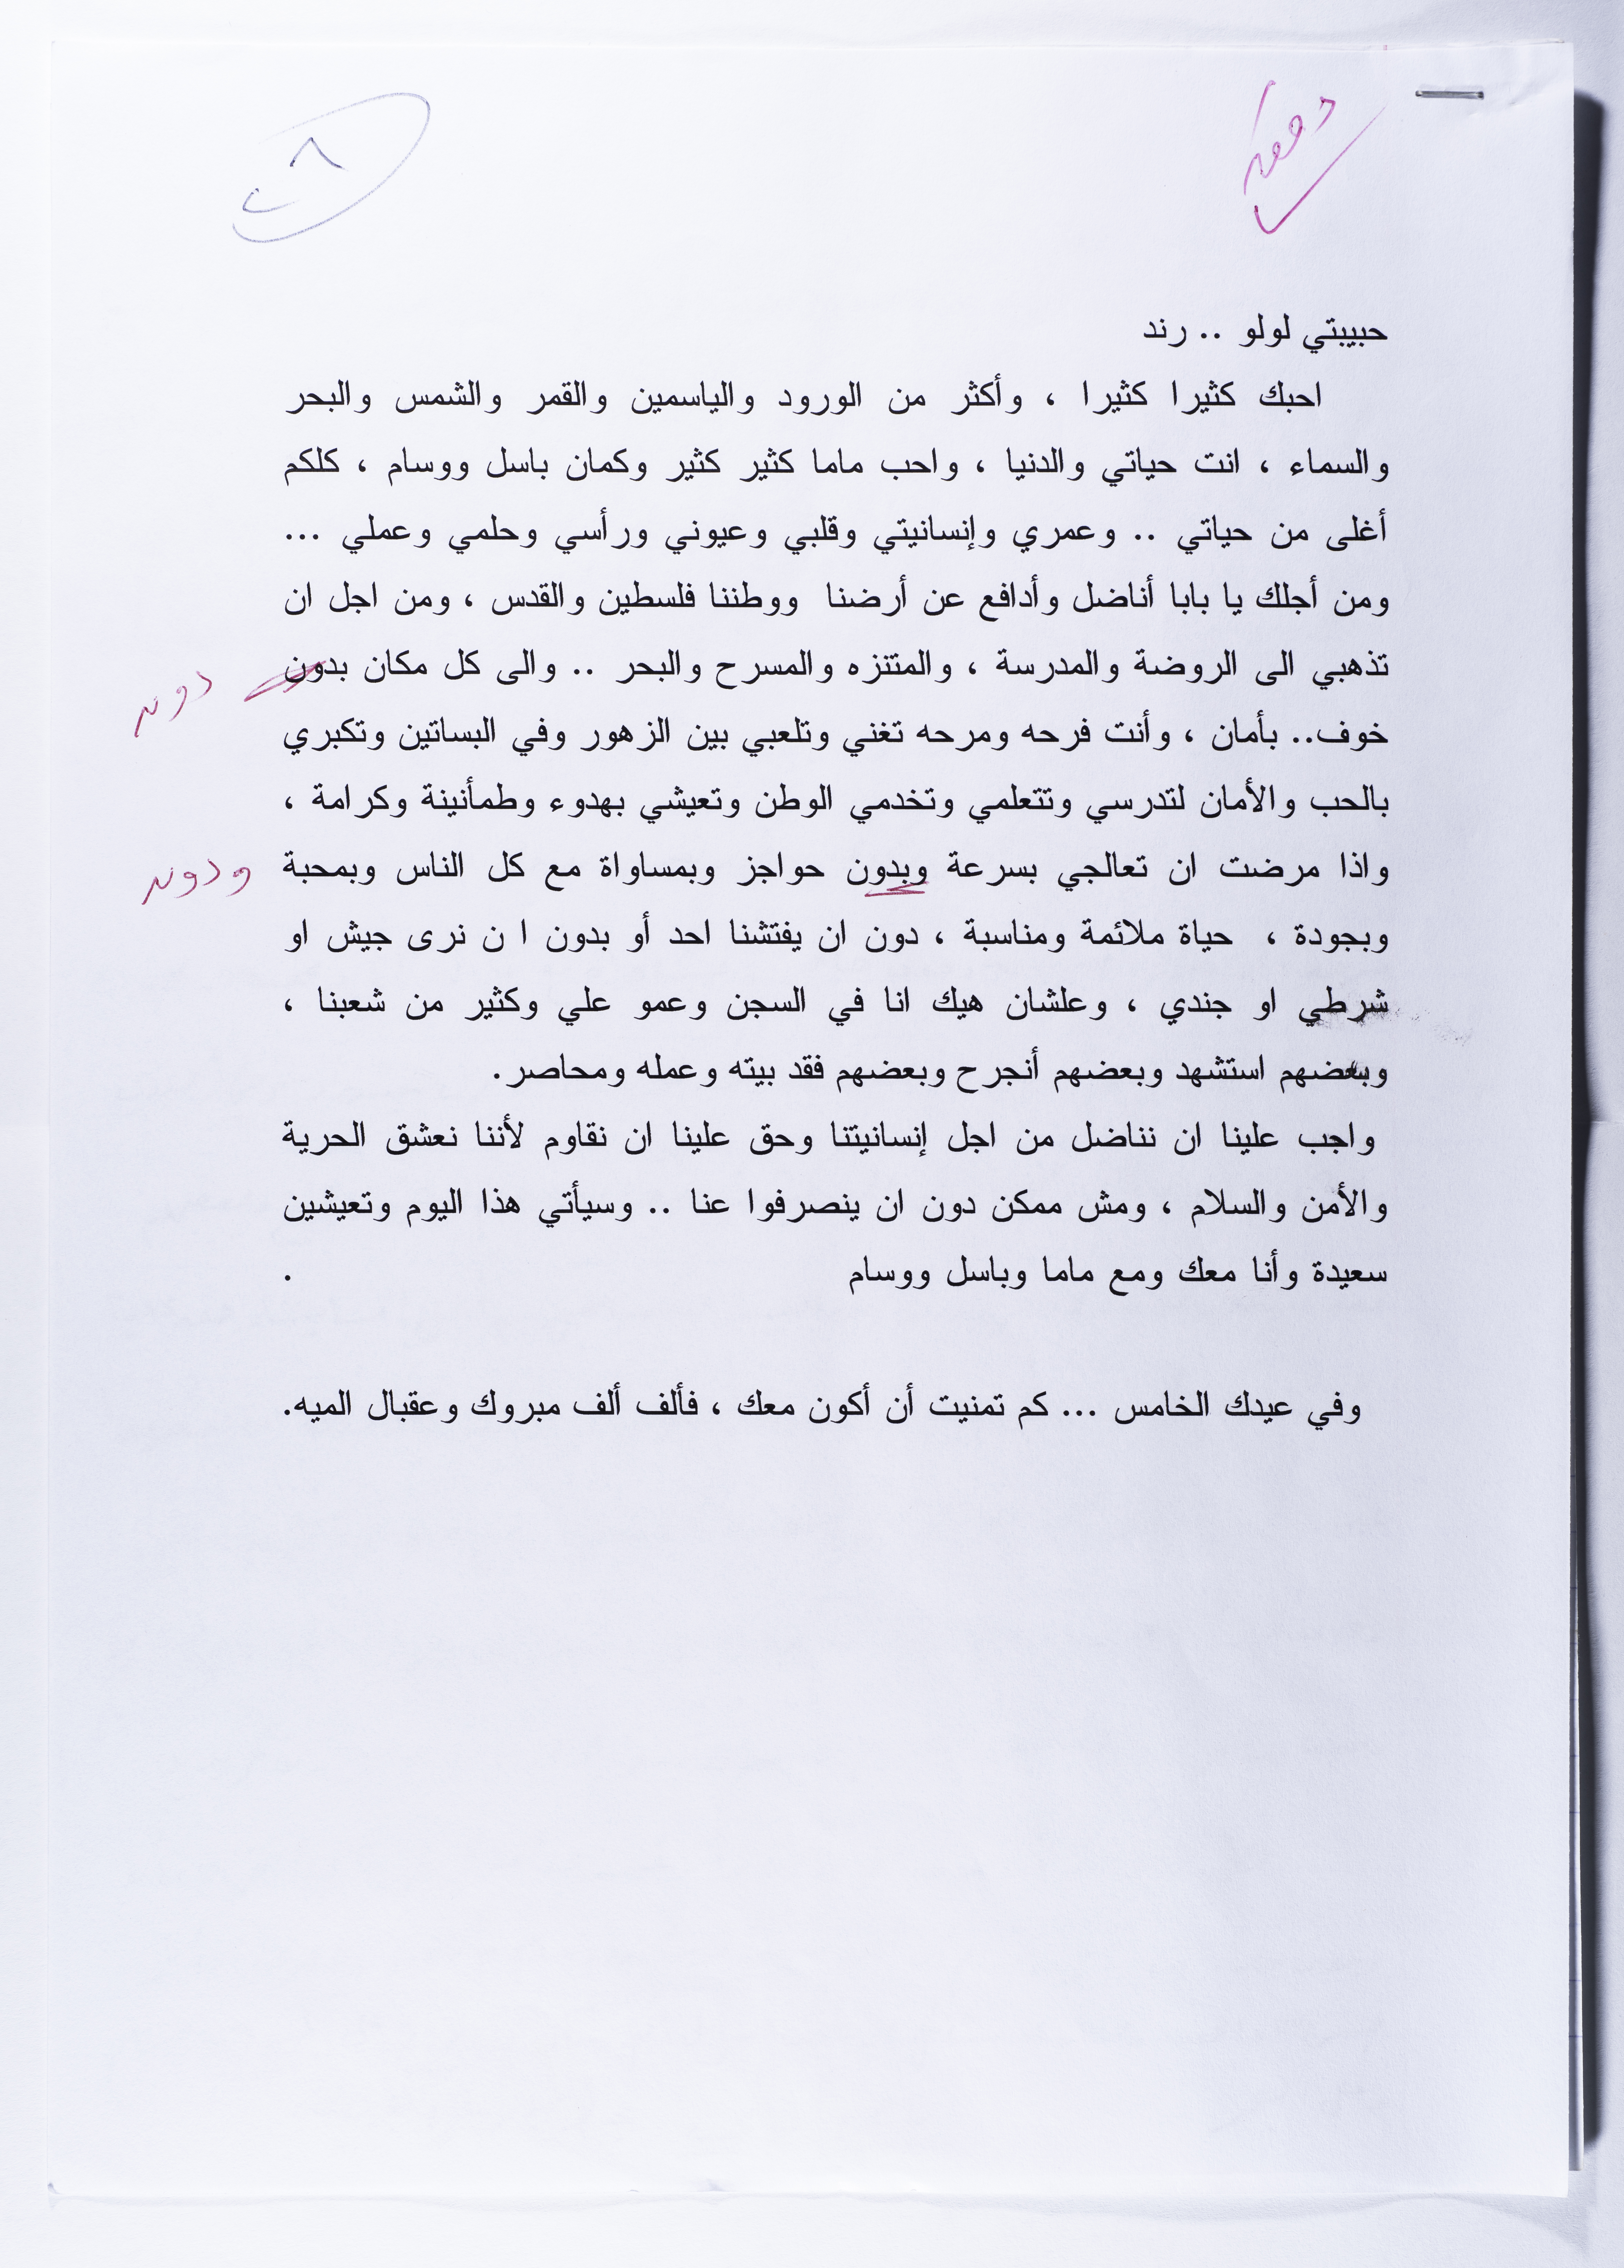 ٨
حبيبتي لولو .. رند
احبك كثيرا كثيرا ، وأكثر من الورود والياسمين والقمر والشمس والبحر
والسماء ، انت حياتي والدنيا ، واحب ماما كثير كثير وكمان باسل ووسام ، كلكم
أغلى من حياتي .. وعمري وإنسانيتي وقلبي وعيوني ورأسي وحلمي وعملي ...
ومن أجلك يا بابا أناضل وأدافع عن أرضنا ووطننا فلسطين والقدس ، ومن اجل ان
تذهبي الى الروضة والمدرسة ، والمتنزه والمسرح والبحر .. والى كل مكان بدون
دون
خوف.. بأمان ، وأنت فرحه ومرحه تغني وتلعبي بين الزهور وفي البساتين وتكبري
بالحب والأمان لتدرسي وتتعلمي وتخدمي الوطن وتعيشي بهدوء وطمأنينة وكرامة ،
واذا مرضت ان تعالجي بسرعة وبدون حواجز وبمساواة مع كل الناس وبمحبة
ودون
وبجودة ، حياة ملائمة ومناسبة ، دون ان يفتشنا احد أو بدون ا ن نرى جيش او
شرطي او جندي ، وعلشان هيك انا في السجن وعمو علي وكثير من شعبنا ،
وبعضهم استشهد وبعضهم أنجرح وبعضهم فقد بيته وعمله ومحاصر.
واجب علينا ان نناضل من اجل إنسانيتنا وحق علينا ان نقاوم لأننا نعشق الحرية
والأمن والسلام ، ومش ممكن دون ان ينصرفوا عنا .. وسيأتي هذا اليوم وتعيشين
سعيدة وأنا معك ومع ماما وباسل ووسام .
وفي عيدك الخامس ... كم تمنيت أن أكون معك ، فألف ألف مبروك وعقبال الميه.